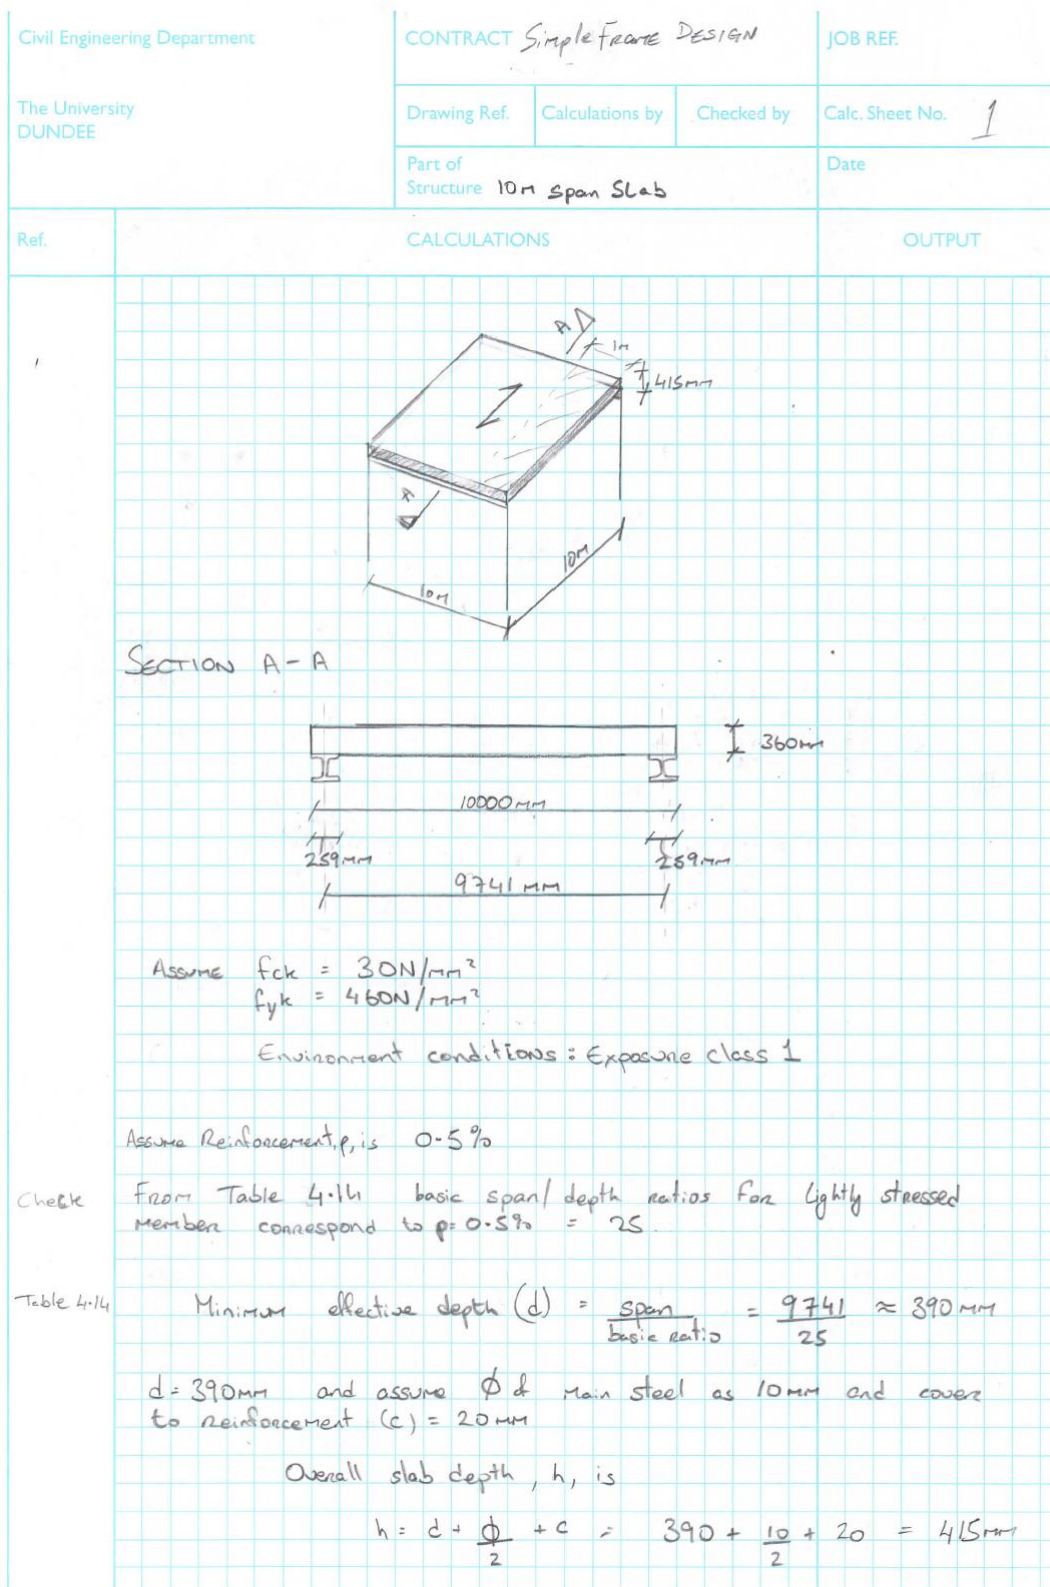 Civil Engineering Department
CONTRACT Simple Frame DESIGN
JOB REF.
The University
DUNDEE
Drawing Ref.
Calculations by
Checked by
Calc. Sheet No. 1
Part of
Structure 10m span Slab
Date
Ref.
CALCULATIONS
OUTPUT
A
1m
415mm
Z
A
10m
10m
SECTION A-A
360mm
10000mm
259mm
259mm
9741mm
Assume fck = 30N/mm²
fyk = 460N/mm²
Environment conditions: Exposure class 1
Assume Reinforcement, ρ, is 0.5%
Check
From Table 4.14 basic span/depth ratios for lightly stressed
member correspond to ρ= 0.5% = 25.
Table 4.14
Minimum effective depth (d) = span/basic ratio = 9741/25 ≈ 390mm
d = 390mm and assume ϕ of main steel as 10mm and cover
to reinforcement (c) = 20mm
Overall slab depth, h, is
h = d + ϕ/2 + c = 390 + 10/2 + 20 = 415mm